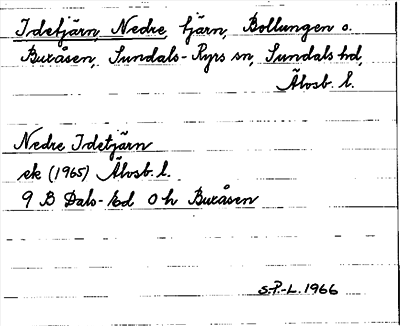 Idetjärn, Nedre, tjärn, Bollungen o.
Buxåsen, Sundals-Ryrs sn, Sundals hd,
Älvsb. l.
Nedre Idetjärn
ek (1965) Älvsb. l.
9 B Dals-Ed 0 h Buxåsen
S.P.-L. 1966